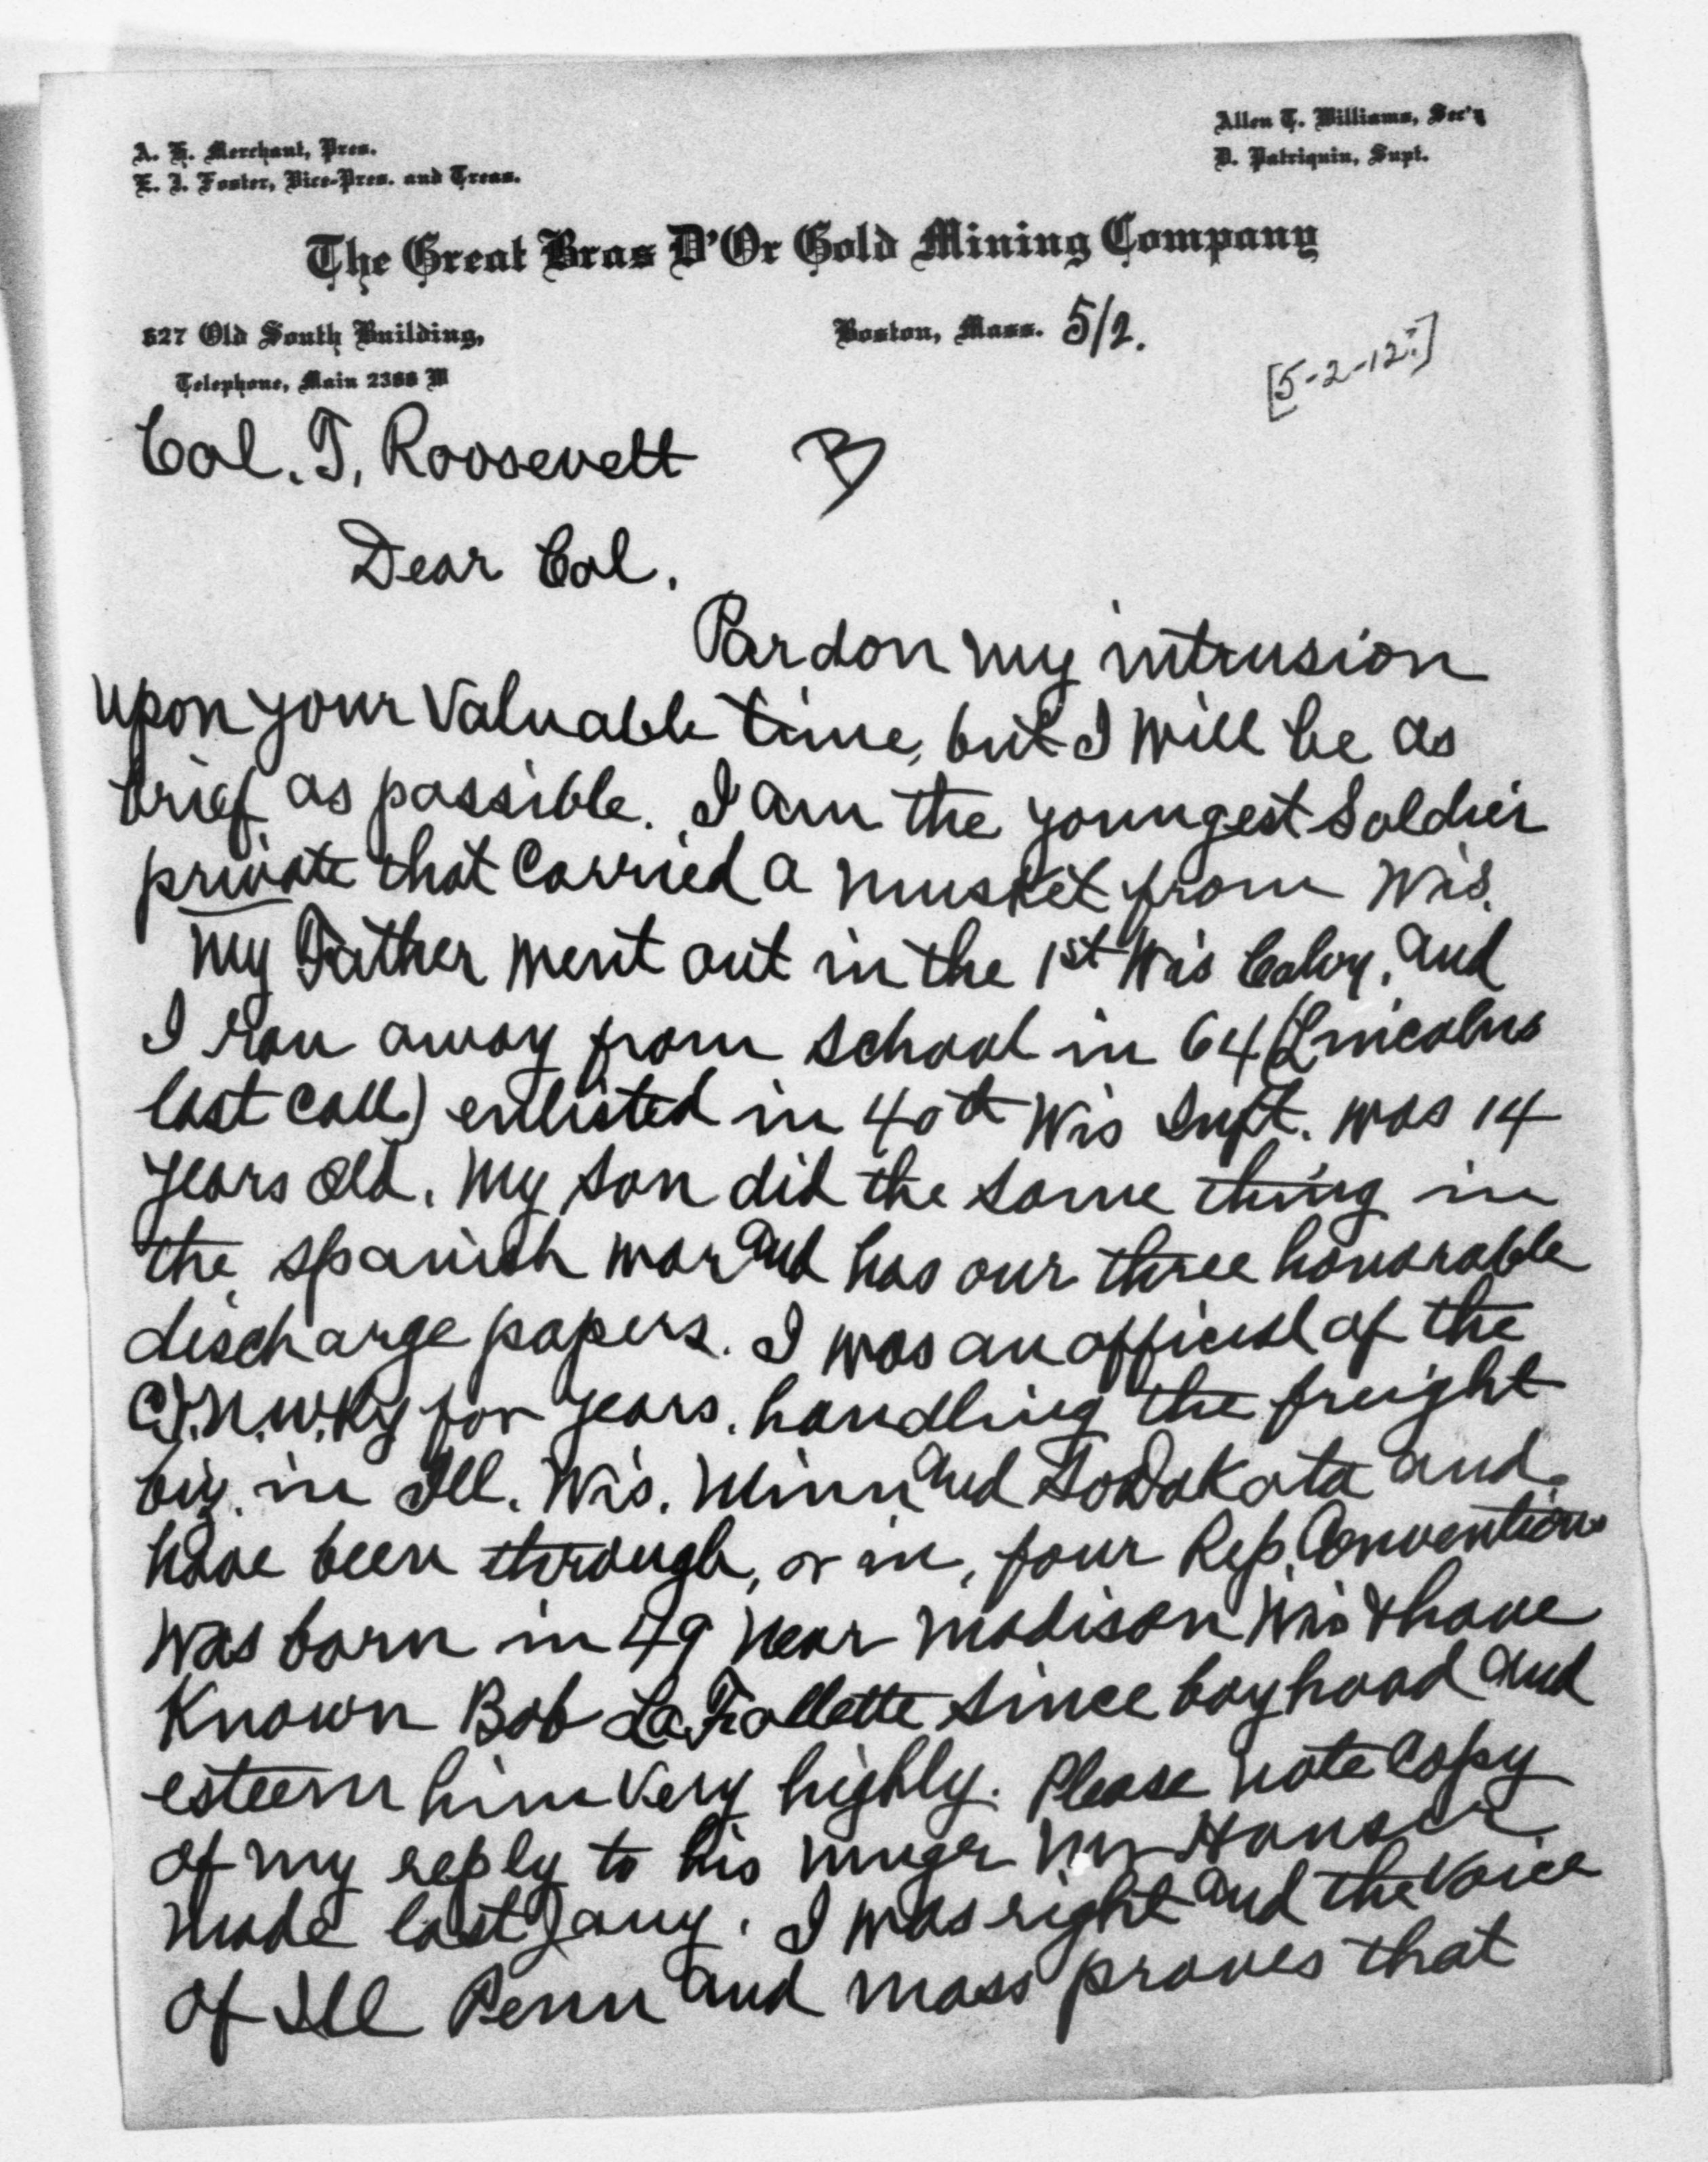 A. H. Merchant, Pres.
E. J. Foster, Vice-Pres. and Treas.
Allen T. Williams, Sec'y
D. Patriquin, Supt.
The Great Bras D'Or Gold Mining Company
527 Old South Building,
Telephone, Main 2388 M
Boston, Mass. 5/2.
[5-2-12?]
Col. T. Roosevelt
B
Dear Col.
Pardon my intrusion
upon your Valuable time, but I will be as
brief as possible. I am the youngest Soldier
private that Carried a musket from Wis.
My Father went out in the 1st Wis Calvy, and
I ran away from school in 64 (Lincolns
last call) enlisted in 40th Wis Inft. was 14
years old. My son did the same thing in
the spanish war and has our three honorable
discharge papers. I was an official of the
C.N.W.Ry for years. handling the freight
biz. in Ill. Wis. Minn and So Dakota and
have been through, or in, four Rep. Conventions
Was born in 49 near Madison Wis & have
Known Bob LaFollette since boyhood and
esteem him very highly. Please note Copy
of my reply to his manger Mr Hanser
made last Jany. I was right and the Voice
of Ill Penn and Mass proves that